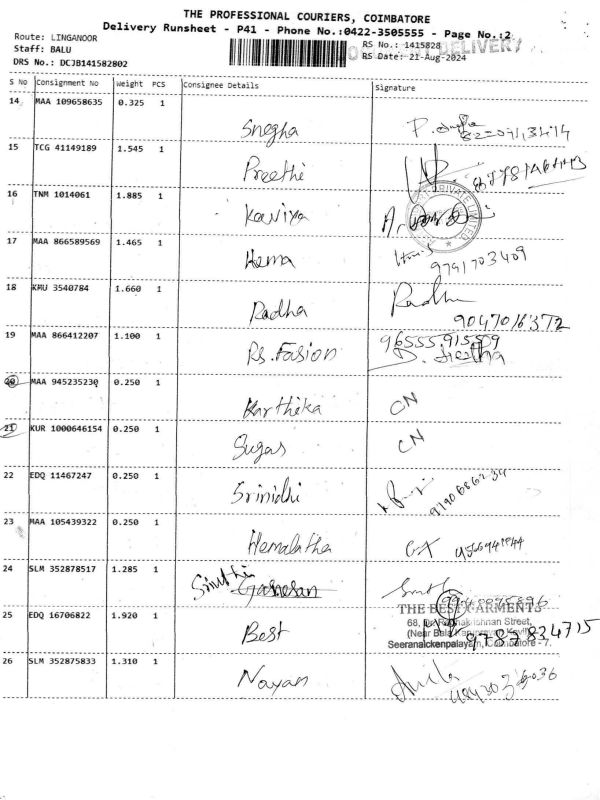 THE PROFESSIONAL COURIERS, COIMBATORE
Delivery Runsheet - P41 - Phone No.:0422-3505555 - Page No.:2
Route: LINGANOOR
Staff: BALU
DRS No.: DCJB141582802
RS No.: 1415828
RS Date: 21-Aug-2024
DELIVERY
S No Consignment No Weight PCS Consignee Details Signature
14 MAA 109658635 0.325 1 Snegha
15 TCG 41149189 1.545 1 Preethi
16 TNM 1014061 1.885 1 Kaviya
PRIVATE LIMITED
17 MAA 866589569 1.465 1 Hema
9791703409
18 KMU 3540784 1.660 1 Radha Radha
9047016372
19 MAA 866412207 1.100 1 Rs. Fasion
20 MAA 945235230 0.250 1 Karthika CN
21 KUR 1000646154 0.250 1 Sugas CN
22 EDQ 11467247 0.250 1 Srinidhi
23 MAA 105439322 0.250 1 Hemalatha
24 SLM 352878517 1.285 1 Sruthi Ganesan
THE BEST GARMENTS
25 EDQ 16706822 1.920 1 Best 9787834715
68, Dr. Radhakrishnan Street,
Seeranaickenpalayam, Coimbatore - 7.
26 SLM 352875833 1.310 1 Nayan Anila